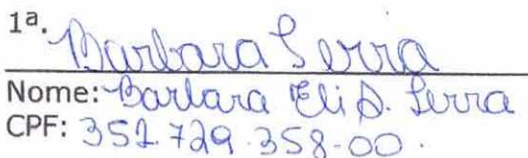 1ª. Barbara Serra
Nome: Barbara Eli S. Serra
CPF: 352.729.358-00.